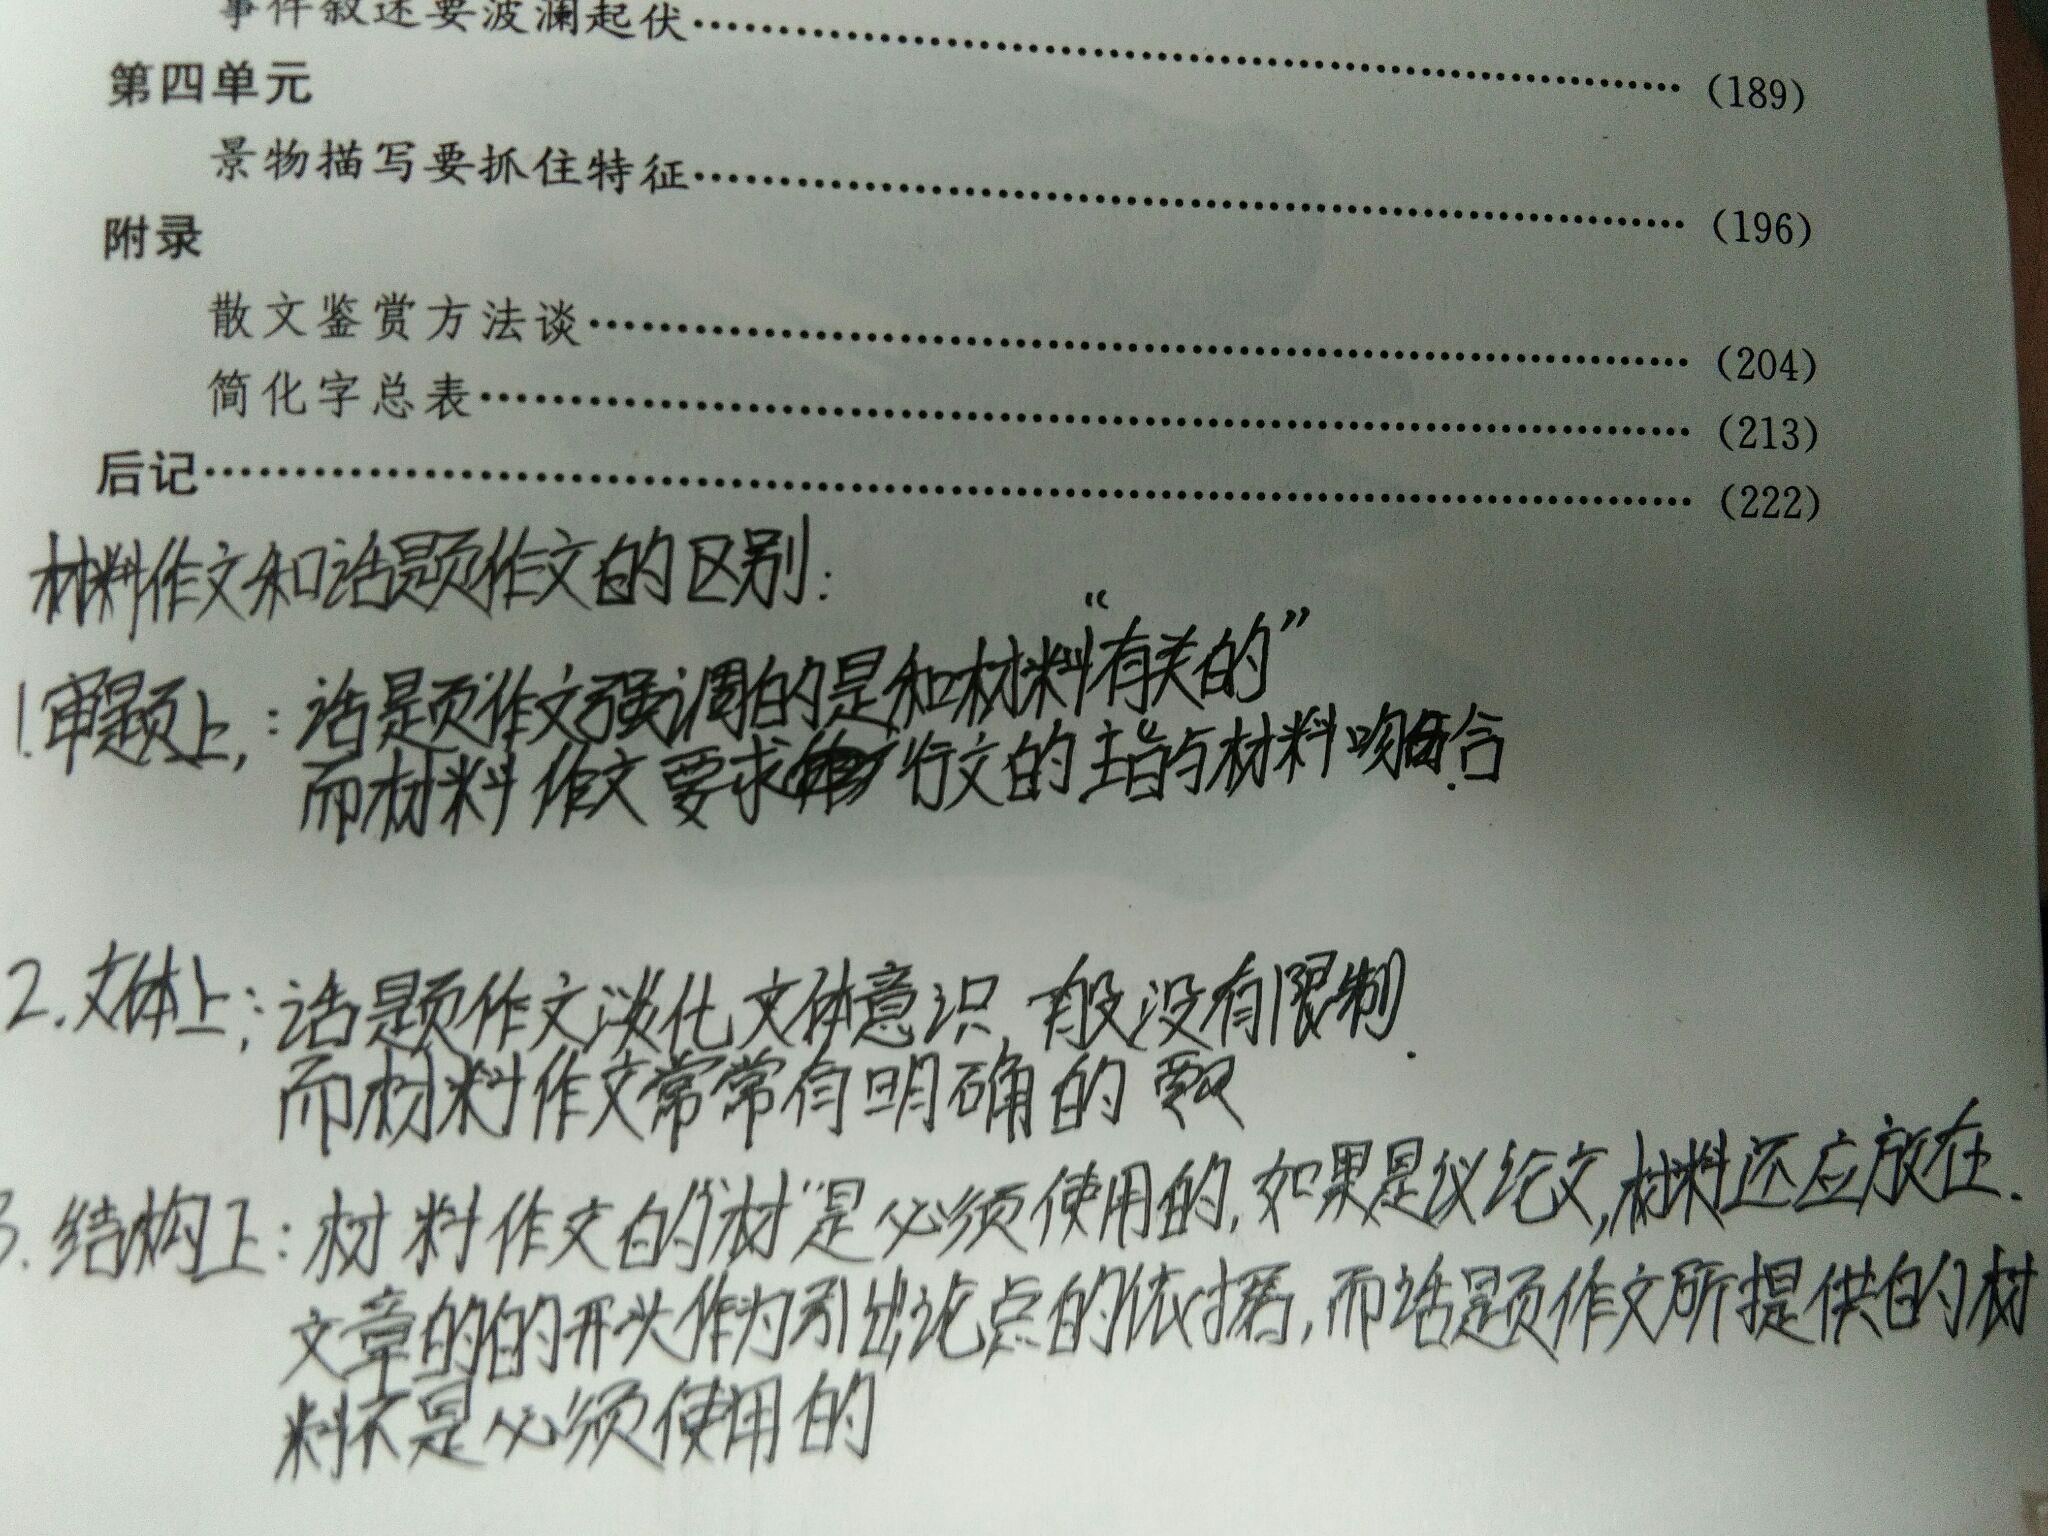 事件叙述要波澜起伏……………………(189)
第四单元
景物描写要抓住特征……………………(196)
附录
散文鉴赏方法谈……………………(204)
简化字总表……………………(213)
后记……………………(222)
材料作文和话题作文的区别:
1.审题上,:话题作文强调的是和材料“有关的”
而材料作文要求行文的主旨与材料吻合.
2.文体上;话题作文淡化文体意识,一般没有限制.
而材料作文常常有明确的要求
3.结构上:材料作文的“材”是必须使用的,如果是议论文,材料还应放在.
文章的的开头作为引出论点的依据,而话题作文所提供的材
料不是必须使用的